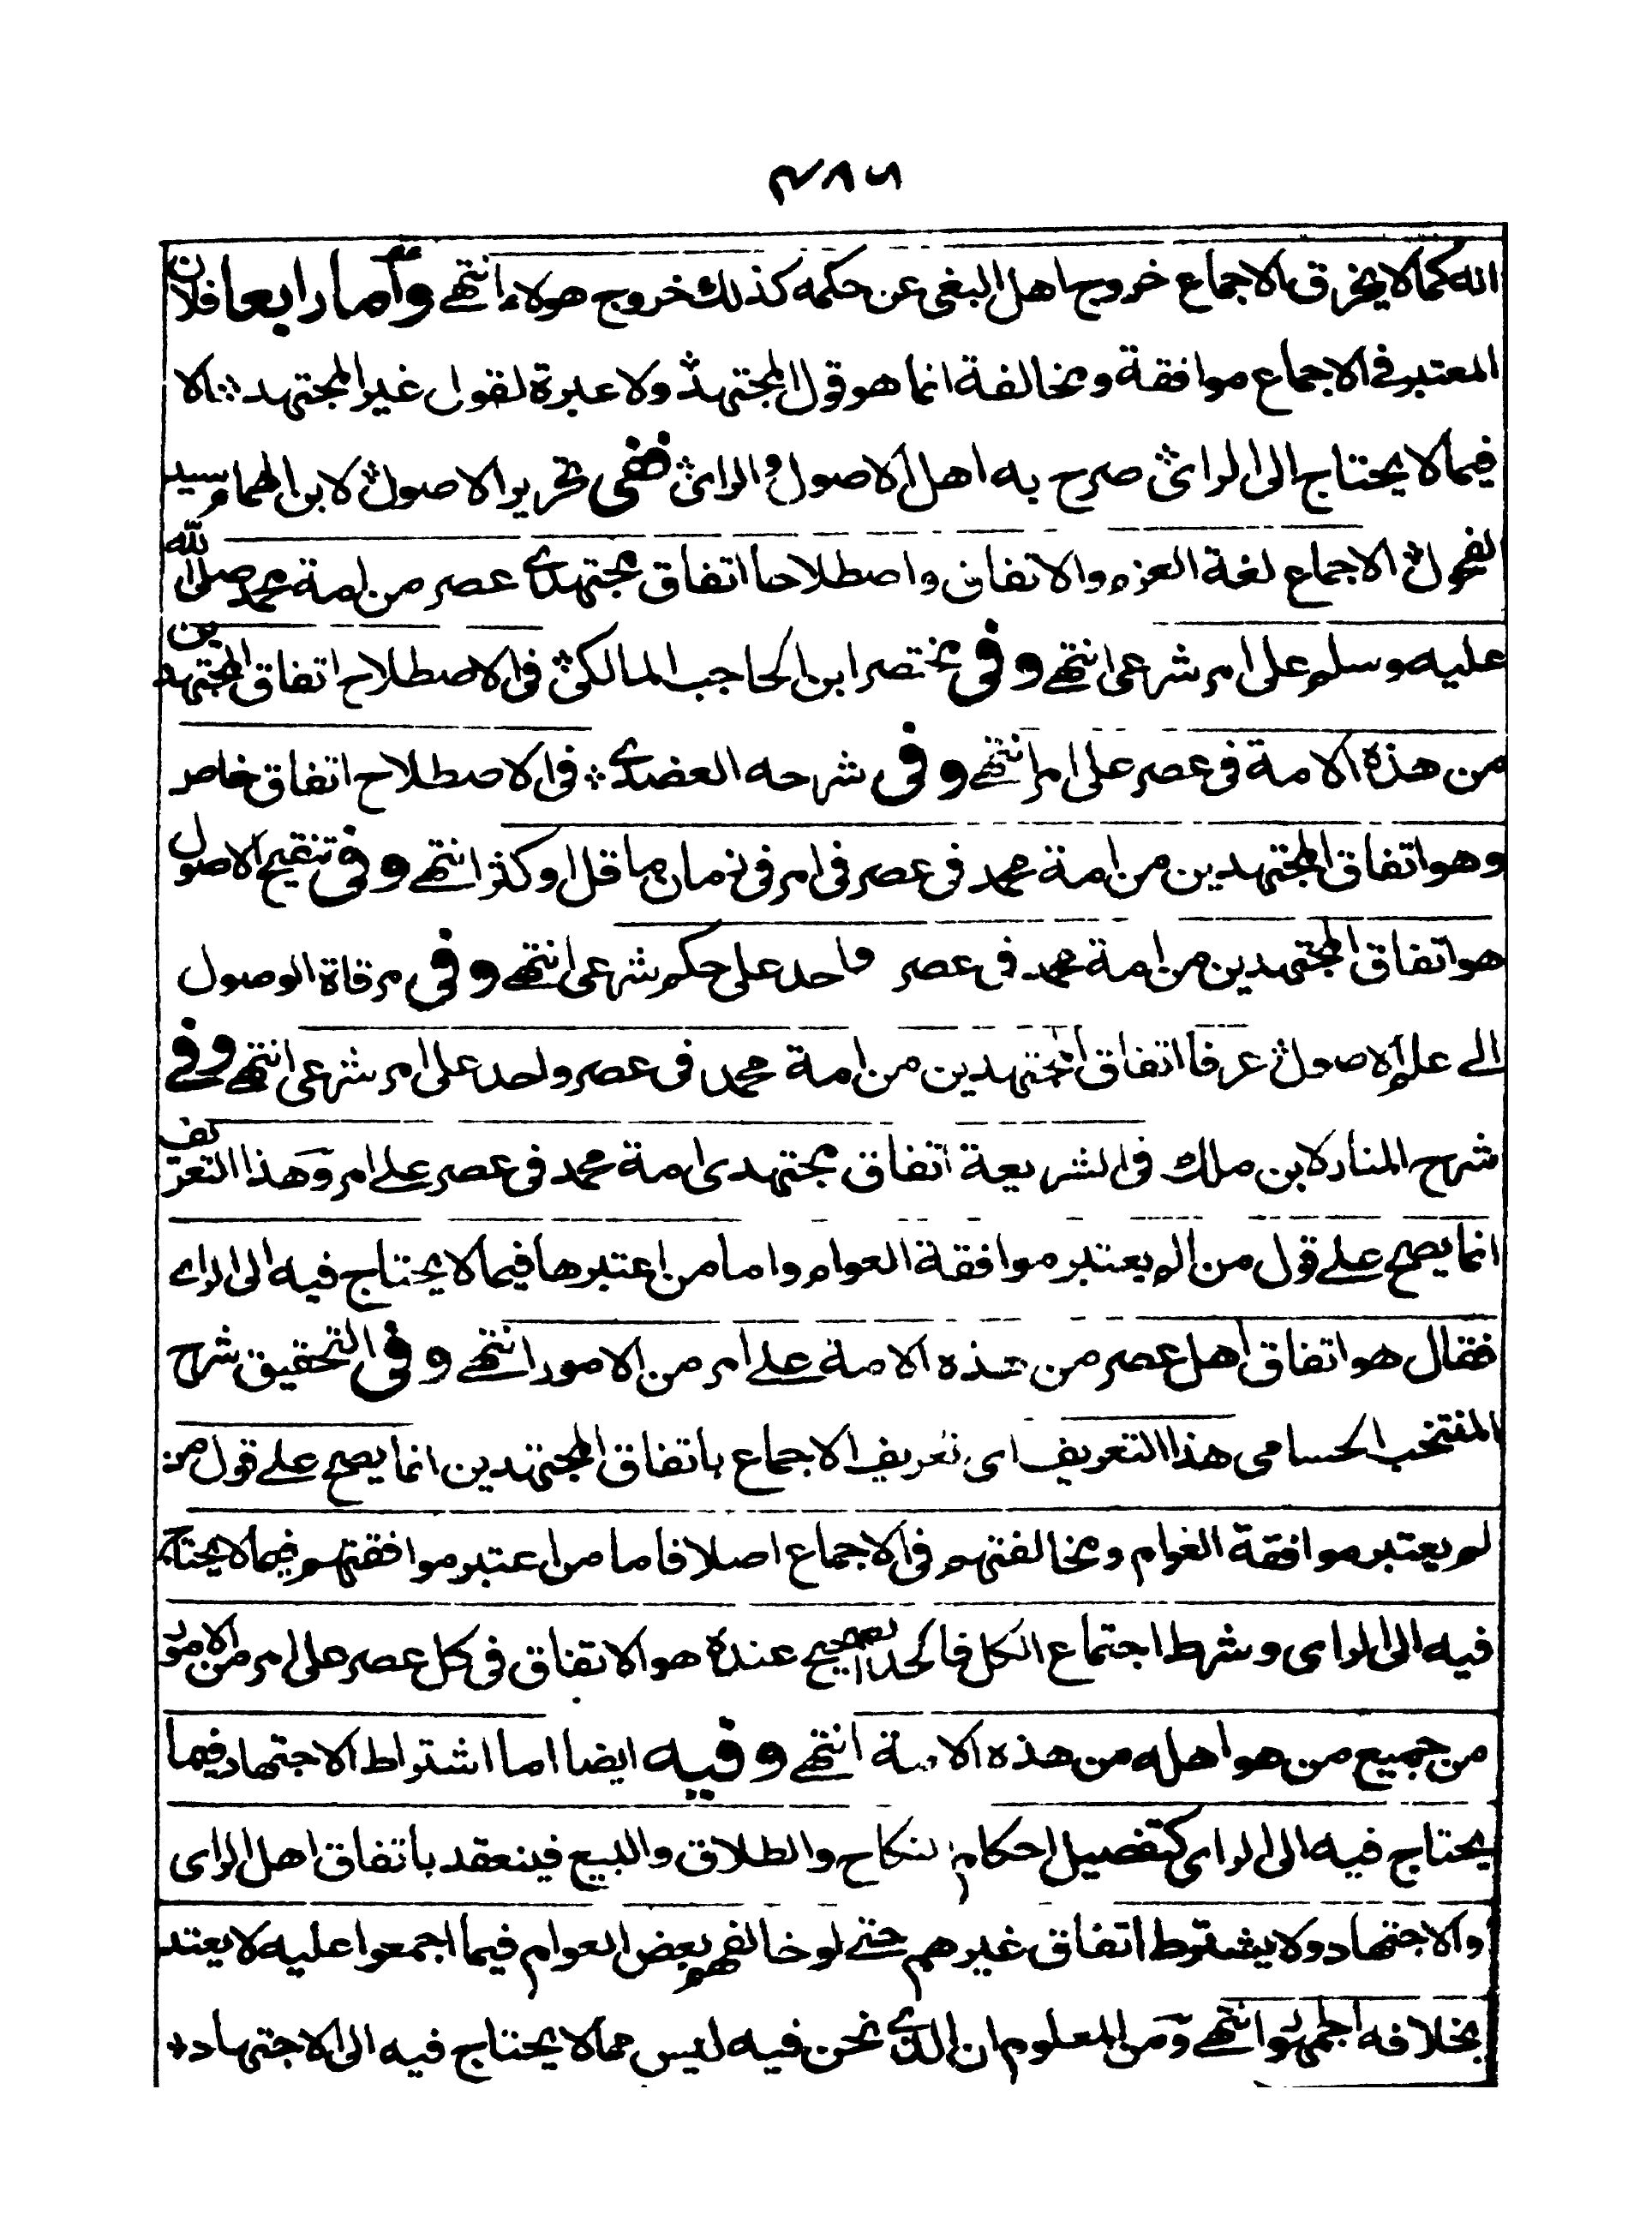 ٤٨٦
الله كما لا يخرق الاجماع خروج اهل البغى عن حكمه كذلك خروج هولاء انتهى واما رابعا فلان
المعتبر فى الاجماع موافقة ومخالفة انما هو قول المجتهد ولا عبرة لقول غير المجتهد الا
فيما لا يحتاج الى الراى صرح به اهل الاصول والراى ففى تحرير الاصول لابن الهمام وسيد
الفحول الاجماع لغة العزم والاتفاق واصطلاحا اتفاق مجتهدى عصر من امة محمد صلى الله
عليه وسلم على امر شرعى انتهى وفى مختصر ابن الحاجب المالكى فى الاصطلاح اتفاق المجتهدين
من هذه الامة فى عصر على امر انتهى وفى شرحه العضدى فى الاصطلاح اتفاق خاص
وهو اتفاق المجتهدين من امة محمد فى عصر فى امر فى زمان ما قل او كثر انتهى وفى تنقيح الاصول
هو اتفاق المجتهدين من امة محمد فى عصر واحد على حكم شرعى انتهى وفى مرقاة الوصول
الى علم الاصول عرفا اتفاق المجتهدين من امة محمد فى عصر واحد على امر شرعى انتهى وفى
شرح المنار لابن ملك فى الشريعة اتفاق مجتهدى امة محمد فى عصر على امر وهذا التعريف
انما يصح على قول من لم يعتبر موافقة العوام واما من اعتبرها فيما لا يحتاج فيه الى الراى
فقال هو اتفاق اهل عصر من هذه الامة على امر من الامور انتهى وفى التحقيق شرح
المنتخب الحسامى هذا التعريف اى تعريف الاجماع باتفاق المجتهدين انما يصح على قول من
لم يعتبر موافقة العوام ومخالفتهم فى الاجماع اصلا فاما من اعتبر موافقتهم فيما لا يحتاج
فيه الى الراى وشرط اجتماع الكل فالحد الصحيح عنده هو الاتفاق فى كل عصر على امر من الامور
من جميع من هو اهله من هذه الامة انتهى وفيه ايضا اما اشتراط الاجتهاد فيما
يحتاج فيه الى الراى كتفصيل احكام النكاح والطلاق والبيع فينعقد باتفاق اهل الراى
والاجتهاد ولا يشترط اتفاق غيرهم حتى لو خالفهم بعض العوام فيما اجمعوا عليه لا يعتد
بخلافه الجمهور انتهى ومن المعلوم ان الذى نحن فيه ليس مما لا يحتاج فيه الى الاجتهاد